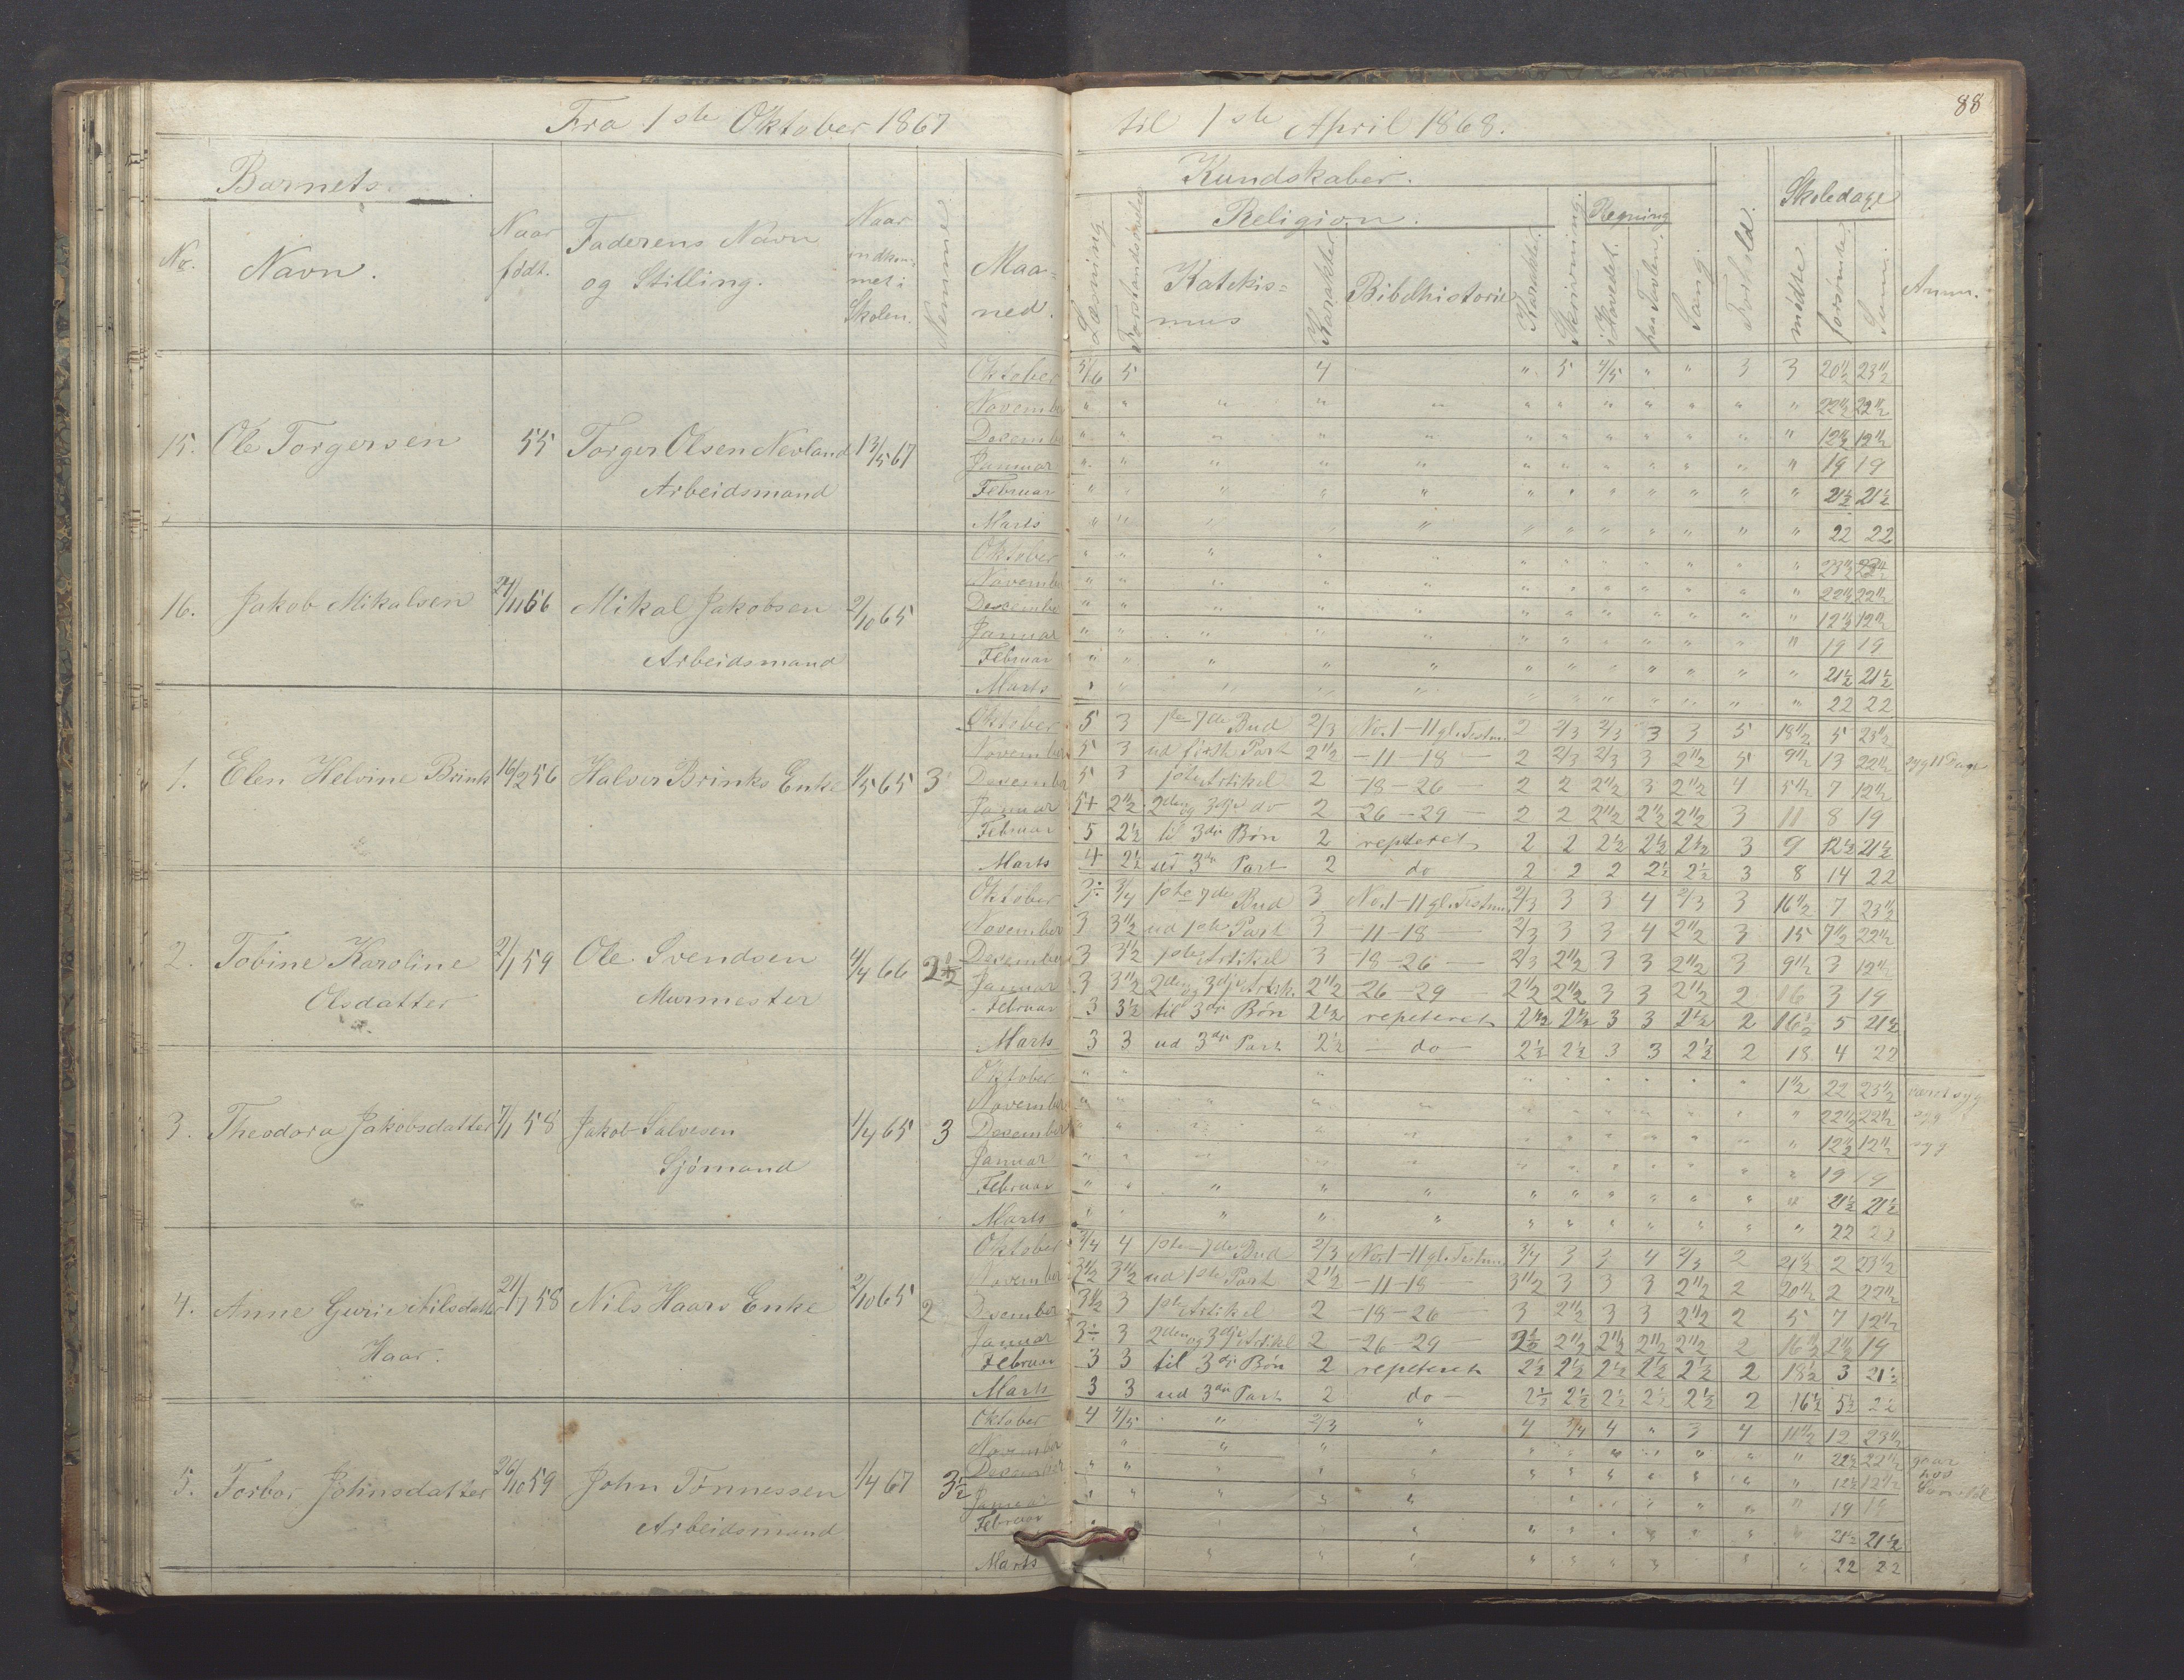 88
Fra 1ste Oktober 1867 til 1ste April 1868.
Barnets Kundskaber. Skoledage
No. Navn. Naar født. Faderens Navn og Stilling. Naar indkommet i Skolen. Nemme Maaned. Læsning Religion. Katekismus Karakter Bibelhistorie Karakter. Skrivning. Regning i Hovedet. paa Tavlen. Sang. Forhold. mødte forsømte. Sum. Anm.
15. Ole Torgersen 55 Torger Olsen Nevland 13/5 67
Arbeidsmand
Oktober 5/6 5 4 " 5 4/5 " " 3 3 20 1/2 23 1/2
November " " " " " " " " " " " " 22 1/2 22 1/2
Desember " " " " " " " " " " " " 12 1/2 12 1/2
Januar " " " " " " " " " " " " 19 19
Februar " " " " " " " " " " " " 21 1/2 21 1/2
Marts " " " " " " " " " " " " 22 22
16. Jakob Mikalsen 24/11 56 Mikal Jakobsen 2/10 65
Arbeidsmand
Oktober " " " " " " " " " " " " 23 1/2 23 1/2
November " " " " " " " " " " " " 22 1/2 22 1/2
Desember " " " " " " " " " " " " 12 1/2 12 1/2
Januar " " " " " " " " " " " " 19 19
Februar " " " " " " " " " " " " 21 1/2 21 1/2
Marts " " " " " " " " " " " " 22 22
1. Elen Helvine Brink 16/2 56 Halvor Brinks Enke 1/5 65 3
Oktober 5 3 1ste - 7de Bud 2/3 No. 1 - 11 gl. Testm. 2 2/3 2/3 3 3 5 18 1/2 5 23 1/2
November 5 3 ud første Part 2 1/2 - 11 - 18 - 2 2/3 2/3 3 2 1/2 5 9 1/2 13 22 1/2 syg 11 Dage
Desember 5 3 1ste Artikel 2 - 18 - 26 - 2 2 2 1/2 3 2 1/2 4 5 1/2 7 12 1/2
Januar 5+ 2 1/2 2den og 3dje do 2 - 26 - 29 - 2 2 2 1/2 2 1/2 2 1/2 3 11 8 19
Februar 5 2 1/2 til 3die Bøn 2 repeteret 2 2 2 1/2 2 1/2 2 1/2 3 9 12 1/2 21 1/2
Marts 4 2 1/2 ud 3die Part 2 do 2 2 2 2 1/2 2 1/2 3 8 14 22
2. Tobine Karoline 2/1 59 Ole Svendsen 4/4 66 2 1/2
Olsdatter Murmester
Oktober 3÷ 3/4 1ste - 7de Bud 3 No. 1 - 11 gl. Testm. 2/3 3 3 4 2/3 3 16 1/2 7 23 1/2
November 3 3 1/2 ud 1ste Part 3 - 11 - 18 - 2/3 3 3 4 2 1/2 3 15 7 1/2 22 1/2
Desember 3 3 1/2 1ste Artikel 3 - 18 - 26 - 2/3 2 1/2 3 3 2 1/2 3 9 1/2 3 12 1/2
Januar 3 3 1/2 2den og 3dje Artik. 2 1/2 - 26 - 29 - 2 1/2 2 1/2 3 3 2 1/2 2 16 3 19
Februar 3 3 1/2 til 3die Bøn 2 1/2 repeteret 2 1/2 2 1/2 3 3 2 1/2 2 16 1/2 5 21 1/2
Marts 3 3 ud 3die Part 2 1/2 - do - 2 1/2 2 1/2 3 3 2 1/2 2 18 4 22
3. Theodora Jakobsdatter 7/1 58 Jakob Salvesen 1/4 65 3
Sjömand
Oktober " " " " " " " " " " 1 1/2 22 23 1/2 været syg
November " " " " " " " " " " " " 22 1/2 22 1/2 syg
Desember " " " " " " " " " " " " 12 1/2 12 1/2 syg
Januar " " " " " " " " " " " " 19 19
Februar " " " " " " " " " " " " 21 1/2 21 1/2
Marts " " " " " " " " " " " " 22 22
4. Anne Gurie Nilsdatter 21/7 58 Nils Haars Enke 2/10 65 2
Haar.
Oktober 3/4 4 1ste - 7de Bud 2/3 No. 1 - 11 gl. Testm. 3/4 3 3 4 2/3 2 21 1/2 2 23 1/2
November 3 1/2 3 1/2 ud 1ste Part 2 1/2 - 11 - 18 - 3 1/2 3 3 3 2 1/2 2 20 1/2 2 22 1/2
Desember 3 1/2 3 1ste Artikel 2 - 18 - 26 - 3 2 1/2 3 3 2 1/2 2 5 7 12 1/2
Januar 3÷ 3 2den og 3dje Artikel 2 - 26 - 29 - 2 1/2 2 1/2 2 1/2 2 1/2 2 1/2 2 16 1/2 2 1/2 19
Februar 3 3 til 3die Bøn 2 repeteret 2 1/2 2 1/2 2 1/2 2 1/2 2 1/2 2 18 1/2 3 21 1/2
Marts 3 3 ud 3die Part 2 do - 2 1/2 2 1/2 2 1/2 2 1/2 2 1/2 2 16 1/2 5 1/2 22
5. Torbor Johnsdatter 26/10 59 John Tønnessen 1/4 67 3 1/2
Arbeidsmand
Oktober 4 4/5 " 2/3 " 4 3/4 4 " 3 4 11 1/2 12 23 1/2
November " " " " " " " " " " " 22 1/2 22 1/2 gaar
Desember " " " " " " " " " " " " 12 1/2 12 1/2 hos
Januar " " " " " " " " " " " " 19 19
Februar " " " " " " " " " " 21 1/2 21 1/2
Marts " " " " " " " " " 22 22